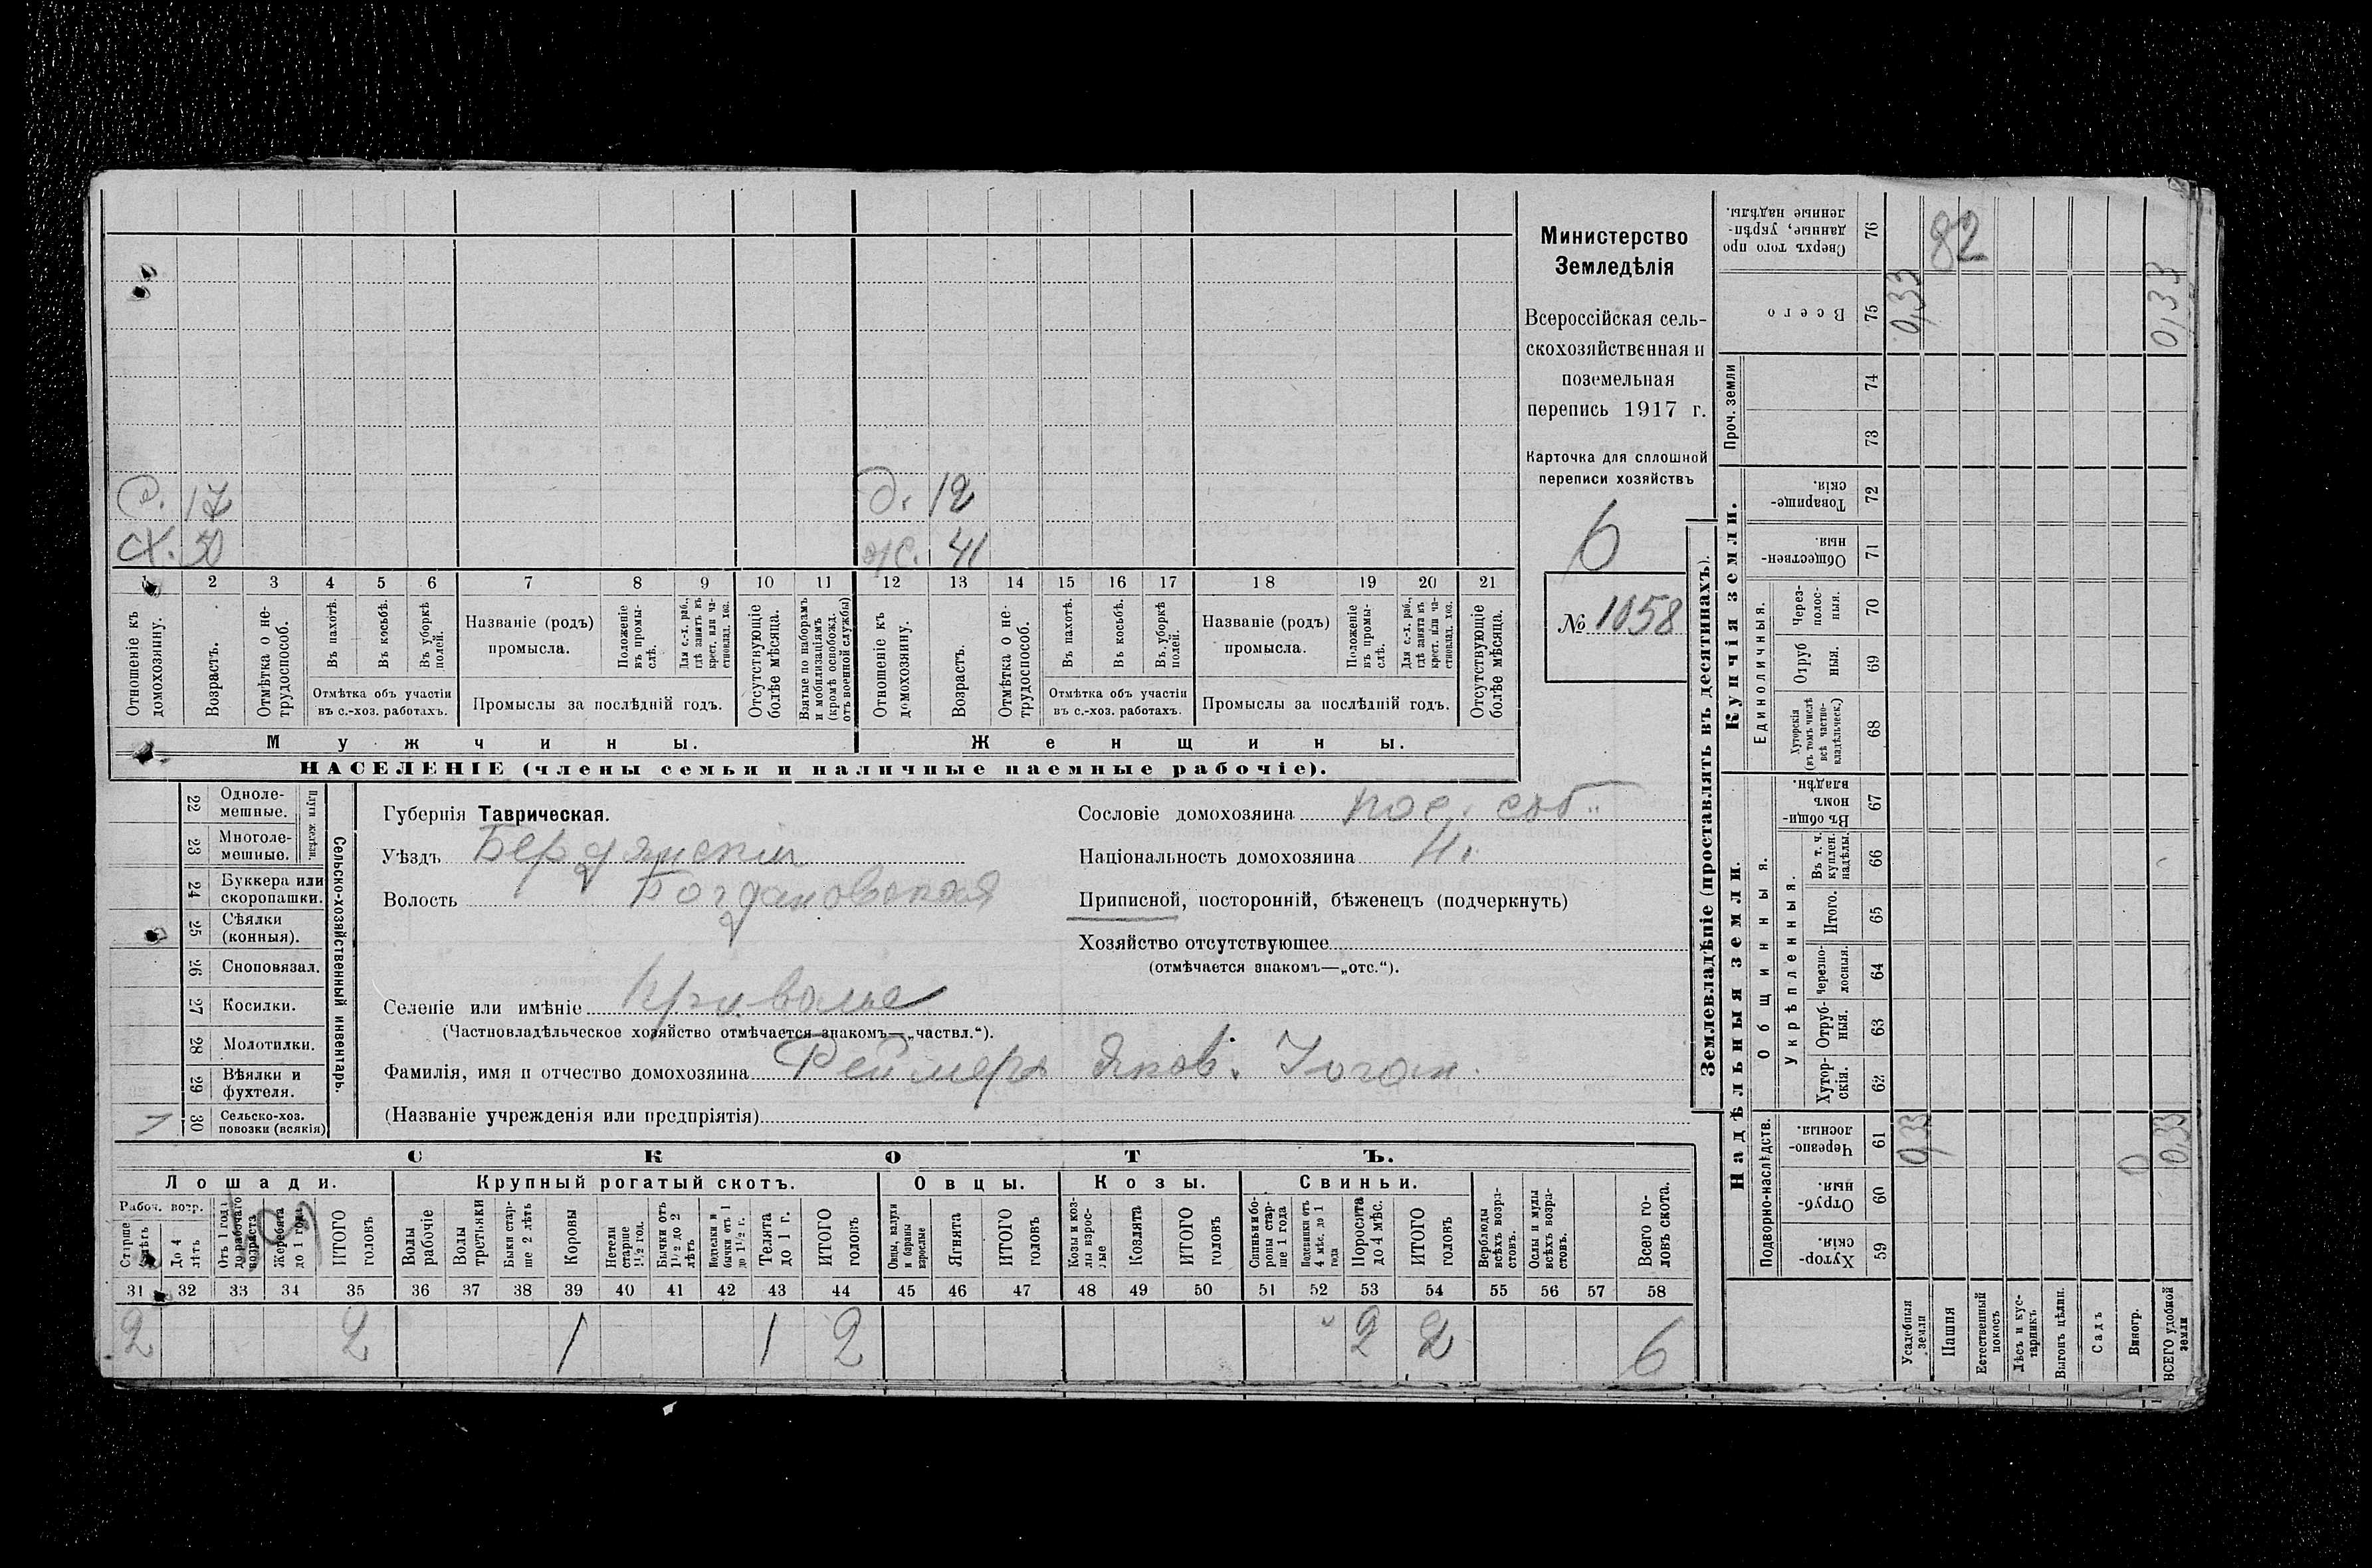 С. 17
Д. 12
Х. 50
Ж. 41
1 2 3 4 5 6 7 8 9 10 11 12 13 14 15 16 17 18 19 20 21
Отношеніе къ домохозяину.
Возрастъ.
Отмѣтка о не-трудоспособ.
Въ пахотѣ.
Въ косьбѣ.
Въ уборкѣ полей.
Отмѣтка объ участіи
въ с.-хоз. работахъ.
Названіе (родъ)
промысла.
Положеніе въ промы-слѣ.
Для с.-х. раб., гдѣ занятъ въ крест. или ча-стновлад. хоз.
Промыслы за послѣдній годъ.
Отсутствующіе болѣе мѣсяца.
Взятые по наборамъ и мобилизаціямъ (кромѣ освобожд. отъ военной службы)
Отношеніе къ домохозяину.
Возрастъ.
Отмѣтка о не-трудоспособ.
Въ пахотѣ.
Въ косьбѣ.
Въ уборкѣ полей.
Отмѣтка объ участіи
въ с.-хоз. работахъ.
Названіе (родъ)
промысла.
Положеніе въ промы-слѣ.
Для с.-х. раб., гдѣ занята въ крест. или ча-стновлад. хоз.
Промыслы за послѣдній годъ.
Отсутствующіе болѣе мѣсяца.
Мужчины.
Женщины.
НАСЕЛЕНІЕ (члены семьи и наличные наемные рабочіе).
Министерство
Земледѣлія
Всероссійская сель-
скохозяйственная и
поземельная
перепись 1917 г.
Карточка для сплошной
переписи хозяйствъ
6
№ 1058
22 Одноле-мешные.
23 Многоле-мешные.
24 Буккера или скоропашки.
25 Сѣялки (конныя).
26 Сноповязал.
27 Косилки.
28 Молотилки.
29 Вѣялки и фухтеля.
30 Сельско-хоз. повозки (всякія)
1
Сельско-хозяйственный инвентарь.
Губернія Таврическая.
Уѣздъ Бердянскій
Волость Богдановская
Сословіе домохозяина пос. соб.
Національность домохозяина Н.
Приписной, посторонній, бѣженецъ (подчеркнуть)
Хозяйство отсутствующее
(отмѣчается знакомъ—„отс.“).
Селеніе или имѣніе
(Частновладѣльческое хозяйство отмѣчается знакомъ—„частвл.“).
Фамилія, имя и отчество домохозяина Реймеръ Яков. Іоган.
(Названіе учрежденія или предпріятія)
СКОТЪ.
Лошади. Крупный рогатый скотъ. Овцы. Козы. Свиньи.
Рабоч. возр.
Старше 4 лѣтъ
До 4 лѣтъ
Отъ 1 года до рабочаго возраста
Жеребята до 1 года
ИТОГО головъ
Волы рабочіе
Волы третьяки
Быки стар-ше 2 лѣтъ
Коровы
Нетели старше 1½ год.
Бычки отъ 1½ до 2 лѣтъ
Подтелки и бычки отъ 1 до 1½ г.
Телята до 1 г.
ИТОГО головъ
Овцы, валухи и бараны взрослые
Ягнята
ИТОГО головъ
Козы и коз-лы взрос-лые
Козлята
ИТОГО головъ
Свиньи и бо-ровы стар-ше 1 года
Подсвинки отъ 4 мѣс. до 1 года
Поросята до 4 мѣс.
ИТОГО головъ
Верблюды всѣхъ возра-стовъ.
Ослы и мулы всѣхъ возра-стовъ.
Всего го-ловъ скота.
31 32 33 34 35 36 37 38 39 40 41 42 43 44 45 46 47 48 49 50 51 52 53 54 55 56 57 58
2 2 1 1 2 2 2 6
Землевладѣніе (проставлять въ десятинахъ).
Сверхъ того про-данные, укрѣп-ленные надѣлы. 76
82
Всего 75
0,33 0,33
Проч. земли
74
73
Купчія земли.
Товарище-скія. 72
Обществен-ныя. 71
Единоличныя.
Через-полос-ныя. 70
Отруб ныя. 69
Хуторскія (въ томъ числѣ всѣ частно-владѣльческ.) 68
Надѣльныя земли.
Общинныя.
Въ общи-номъ владѣн. 67
Укрѣпленныя.
Въ т. ч. куплен. надѣлы. 66
Итого. 65
Черезпо-лосныя. 64
Отруб-ныя. 63
Хутор-скія. 62
Подворно-наслѣдств.
Черезпо-лосныя. 61
0,33 0 0,33
Отруб-ныя. 60
Хутор-скія. 59
Усадебныя земли
Пашня
Естественный покосъ
Лѣсъ и кус-тарникъ
Выгонъ цѣлин.
Садъ
Виногр.
ВСЕГО удобной земли